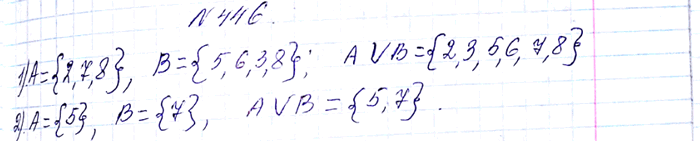 N 446.
1) A={2,7,8}, B={5,6,3,8}; A V B={2,3,5,6,7,8}
2) A={5}, B={7}, A V B={5,7}.